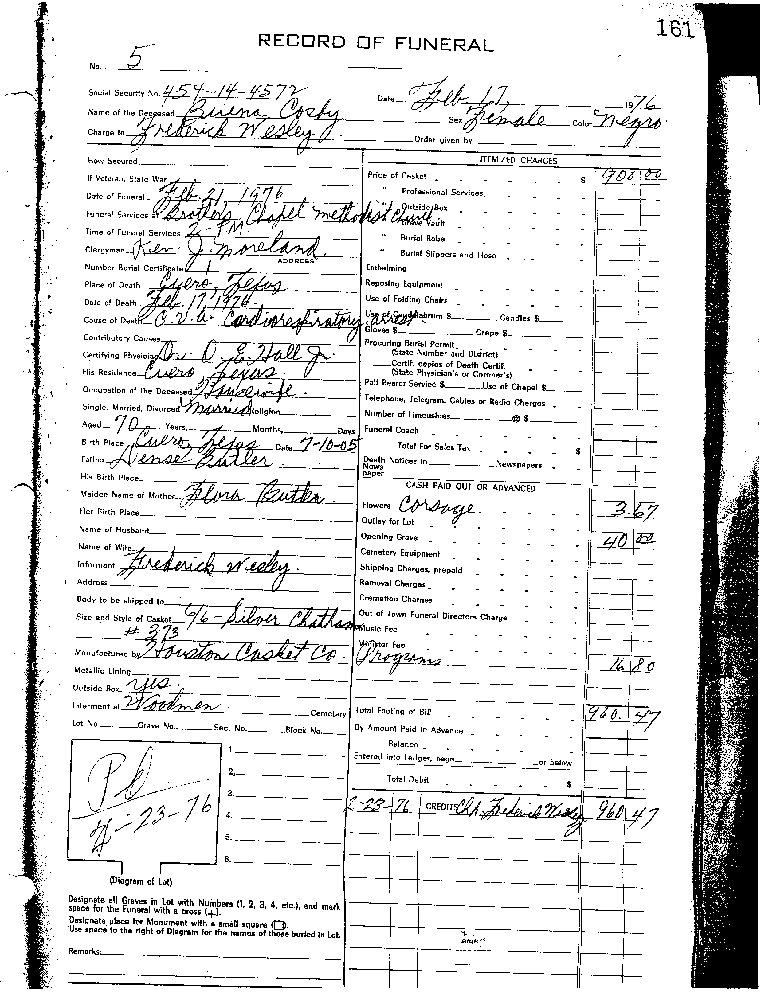 161
RECORD OF FUNERAL
No. 5
Social Security No. 454-14-4572 Date Feb. 17, 1976
Name of the Deceased Buena Cosby Sex Female Color Negro
Charge to Frederick Wesley Order given by
How Secured
If Veteran, State War
Date of Funeral Feb 21, 1976
Funeral Services at Brother's Chapel Methodist Church
Time of Funeral Services 2 PM
Clergyman Rev. J. Moreland
ADDRESS
Number Burial Certificate
Place of Death Cuero, Texas
Date of Death Feb. 17, 1976
Cause of Death C.V.A. Cardiorespiratory arrest
Contributory Causes
Certifying Physician Dr. O. E. Hall Jr.
His Residence Cuero Texas
Occupation of the Deceased Housewife
Single, Married, Divorced Married Religion
Aged 70 Years, Months, Days
Birth Place Cuero, Texas Date 7-10-05
Father Dense Butler
His Birth Place
Maiden Name of Mother Flora Butler
Her Birth Place
Name of Husband
Name of Wife
Informant Frederick Wesley.
Address
Body to be shipped to
Size and Style of Casket 6/6-Silver Chatham
# 273
Manufactured by Houston Casket Co.
Metallic Lining
Outside Box yes
Interment at Woodmen Cemetery
Lot No. Grave No. Sec. No. Block No.
Pd
4-23-76
1.
2.
3.
4.
5.
6.
(Diagram of Lot)
Designate all Graves in Lot with Numbers (1, 2, 3, 4, etc.), and mark
space for the Funeral with a cross (+).
Designate place for Monument with a small square (□).
Use space to the right of Diagram for the names of those buried in Lot.
Remarks:
ITEMIZED CHARGES
Price of Casket $ 900 00
" Professional Services,
" Outside Box
" Grave Vault
" Burial Robe
" Burial Slippers and Hose
Embalming
Reposing Equipment
Use of Folding Chairs
Use of Candelabrum $ Candles $
Gloves $ Crepe $
Procuring Burial Permit
(State Number and District)
Certif. copies of Death Certif.
(State Physician's or Coroner's)
Pall Bearer Service $ Use of Chapel $
Telephone, Telegram, Cables or Radio Charges
Number of Limousines @ $
Funeral Coach
Total For Sales Tax $
Death Notices in Newspapers
News
paper
CASH PAID OUT OR ADVANCED
Flowers Corsage 3.67
Outlay for Lot
Opening Grave 40 00
Cemetery Equipment
Shipping Charges, prepaid
Removal Charges
Cremation Charges
Out of Town Funeral Directors Charge
Music Fee
Minister Fee
Programs 16 80
Total Footing of Bill 960. 47
By Amount Paid in Advance
Balance
Entered into Ledger, page or below
Total Debit $
23 76 CREDITS Frederick Wesley 960 47